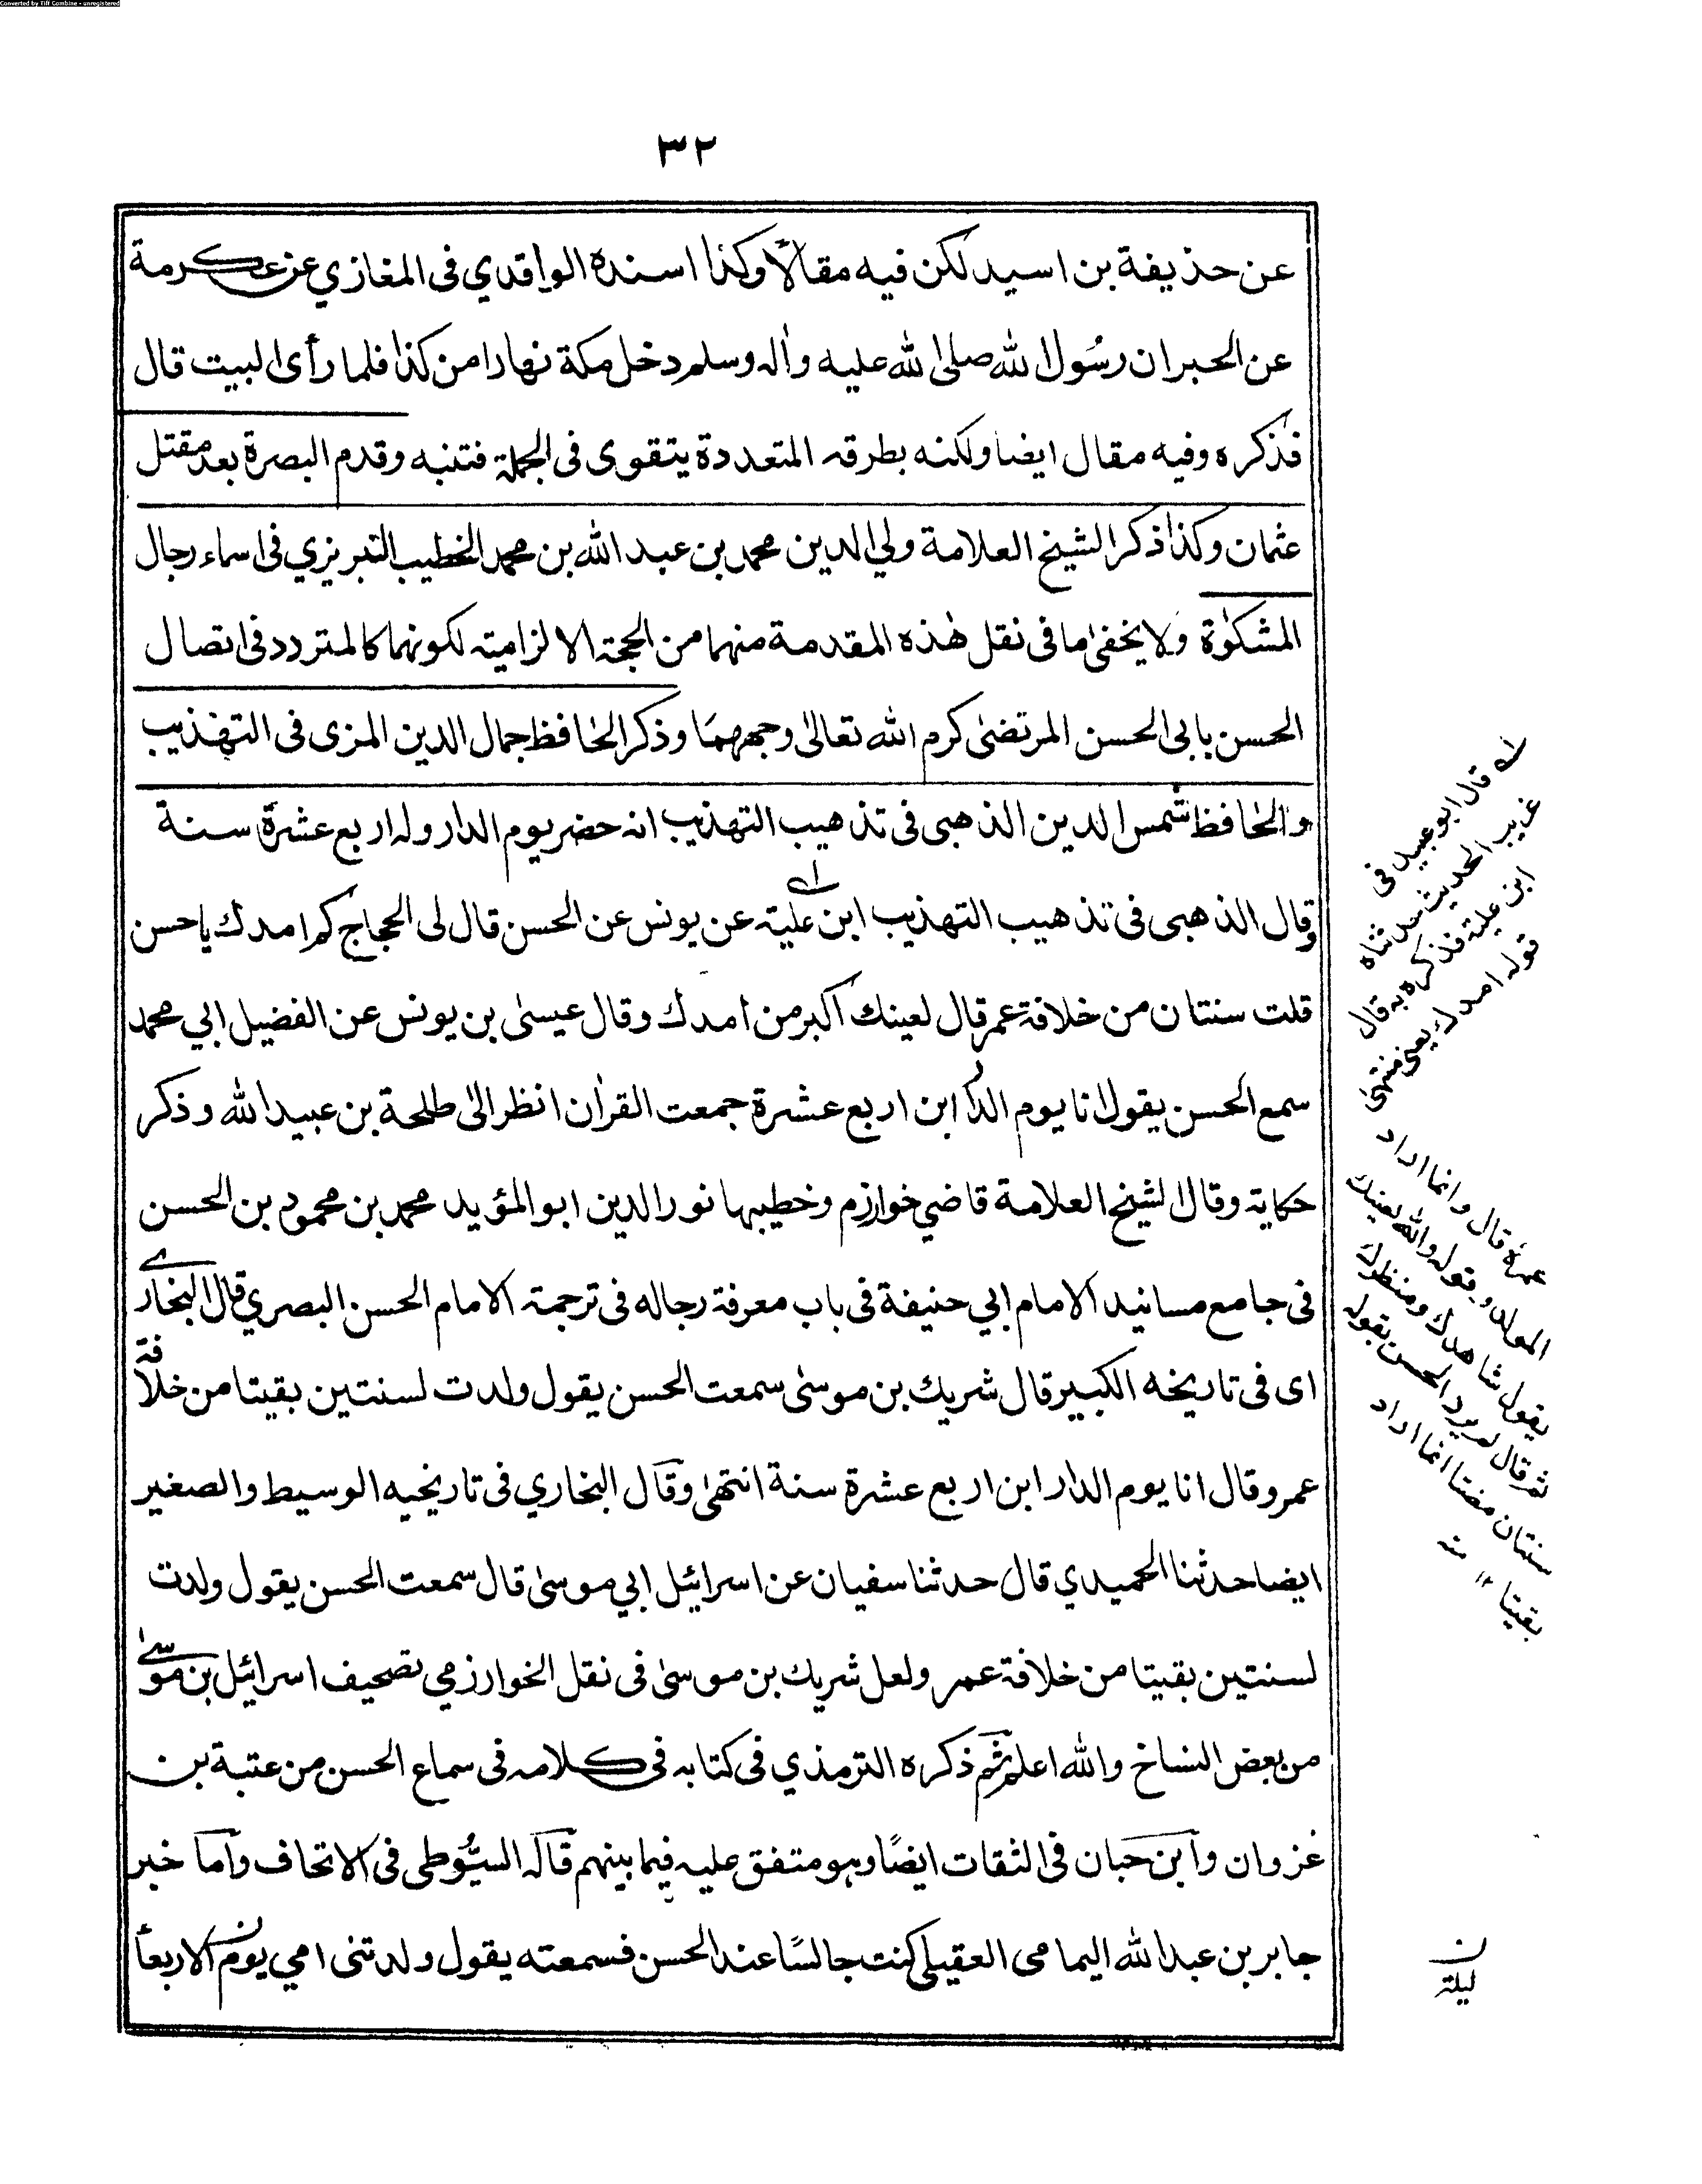 Converted by Tiff Combine - unregistered
٣٢
عن حذيفة بن اسيد لكن فيه مقالا وكذا اسنده الواقدي فى المغازي عن عكرمة
عن الحبران رسول الله صلى الله عليه واٰله وسلم دخل مكة نهارا من كذا فلما رأى البيت قال
فذكره وفيه مقال ايضا ولكنه بطرقه المتعددة يتقوى فى الجملة فتنبه وقدم البصرة بعد مقتل
عثمان وكذا ذكر الشيخ العلامة ولي الدين محمد بن عبد الله بن محمد الخطيب التبريزي فى اسماء رجال
المشكوٰة ولا يخفى ما فى نقل هٰذه المقدمة منهما من الحجة الالزامية لكونهما كالمتردد فى اتصال
الحسن بابى الحسن المرتضىٰ كرم الله تعالىٰ وجههما وذكر الحافظ جمال الدين المزى فى التهذيب
والحافظ شمس الدين الذهبى فى تذهيب التهذيب انه حضر يوم الدار وله اربع عشرة سنة
وقال الذهبى فى تذهيب التهذيب ابن علية عن يونس عن الحسن قال لى الحجاج كم امدك ياحسن
قلت سنتان من خلافة عمر قال لعينك اكبر من امدك وقال عيسىٰ بن يونس عن الفضيل ابي محمد
سمع الحسن يقول انا يوم الدار ابن اربع عشرة جمعت القراٰن انظر الىٰ طلحة بن عبيد الله وذكر
حكاية وقال الشيخ العلامة قاضي خوارزم وخطيبها نور الدين ابو المؤيد محمد بن محمود بن الحسن
فى جامع مسانيد الامام ابي حنيفة فى باب معرفة رجاله فى ترجمة الامام الحسن البصري قال البخارى
اى فى تاريخه الكبير قال شريك بن موسىٰ سمعت الحسن يقول ولدت لسنتين بقيتا من خلافة
عمر وقال انا يوم الدار ابن اربع عشرة سنة انتهىٰ وقال البخاري فى تاريخيه الوسيط والصغير
ايضا حدثنا الحميدي قال حدثنا سفيان عن اسرائيل ابي موسىٰ قال سمعت الحسن يقول ولدت
لسنتين بقيتا من خلافة عمر ولعل شريك بن موسىٰ فى نقل الخوارزمي تصحيف اسرائيل بن موسىٰ
من بعض النساخ والله اعلم ثم ذكره الترمذي فى كتابه فى كلامه فى سماع الحسن من عتبة بن
غزوان وابن حبان فى الثقات ايضًا وهو متفق عليه فيما بينهم قاله السيوطى فى الاتحاف واما خبر
جابر بن عبد الله اليمامى العقيلى كنت جالسًا عند الحسن فسمعته يقول ولدتنى امي يوم الاربعاء
قال ابو عبيد فى
غريب الحديث حدثناه
ابن علية فذكره به قال
قوله امدك يعنى منتهىٰ
عمره قال وانما اراد
المولد وقوله والله لعينك
يقول شاهدك ومنظرك
ثم قال لم يرد الحسن بقوله
سنتان مضتا انما اراد
بقيتا ١٢ منه
ن
ليلة